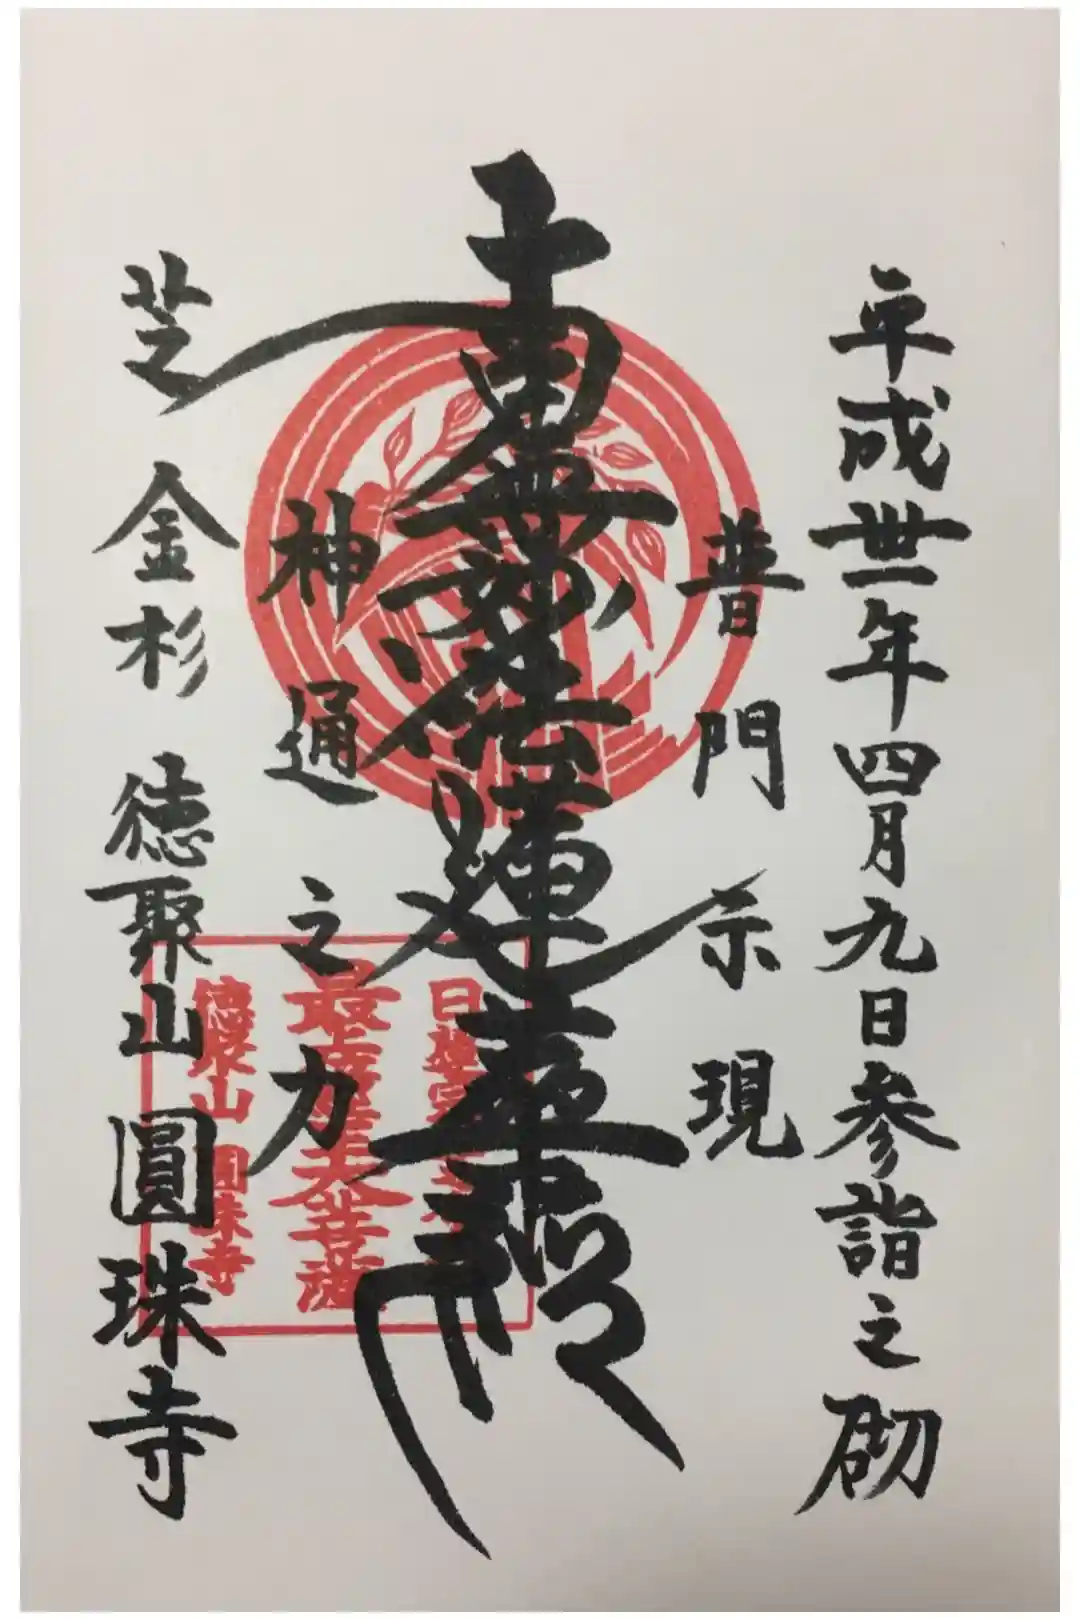 平成丗一年四月九日参詣之砌
普門示現
南無妙法蓮華經
神通之力
芝 金杉 徳聚山 圓珠寺
徳聚山 圓珠寺